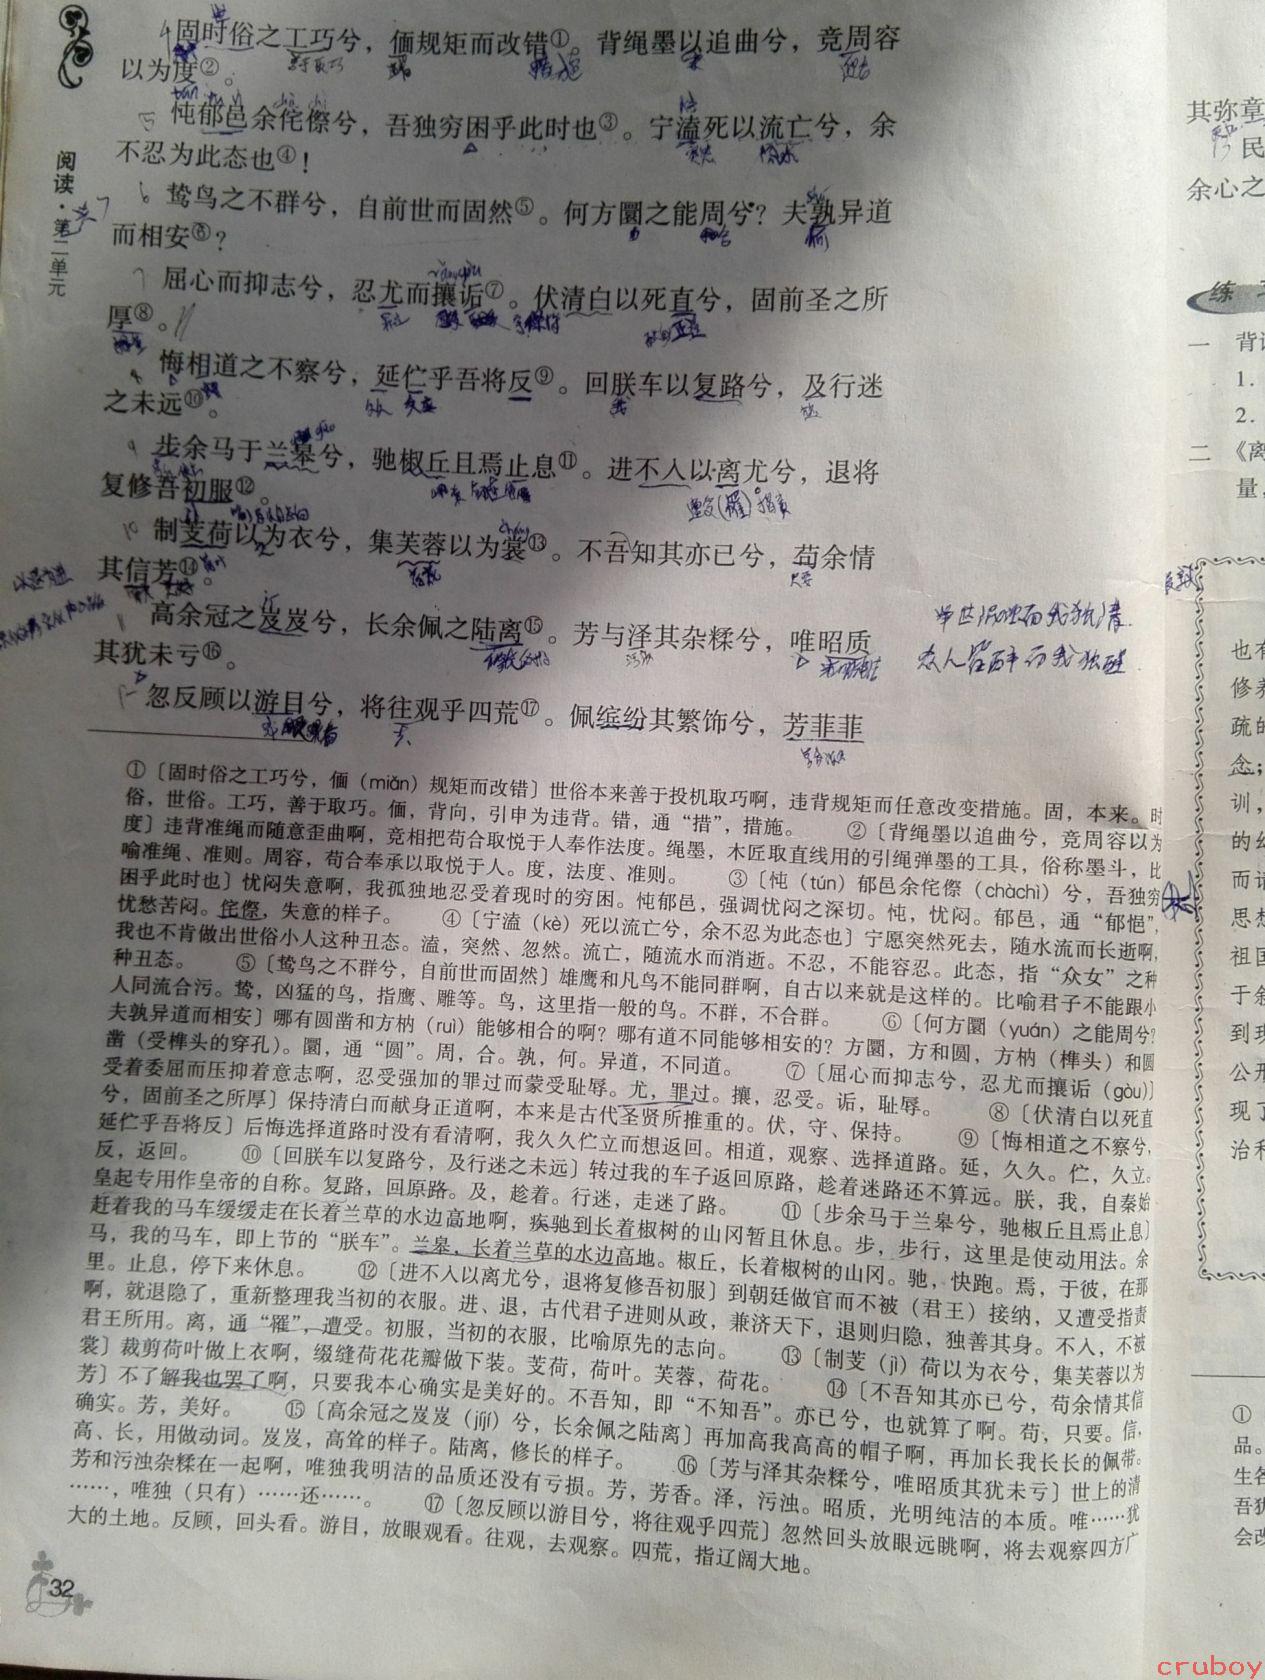 固时俗之工巧兮，偭规矩而改错①。背绳墨以追曲兮，竞周容
以为度②。
忳郁邑余侘傺兮，吾独穷困乎此时也③。宁溘死以流亡兮，余
不忍为此态也④！
鸷鸟之不群兮，自前世而固然⑤。何方圜之能周兮？夫孰异道
而相安⑥？
屈心而抑志兮，忍尤而攘诟⑦。伏清白以死直兮，固前圣之所
厚⑧。
悔相道之不察兮，延伫乎吾将反⑨。回朕车以复路兮，及行迷
之未远⑩。
步余马于兰皋兮，驰椒丘且焉止息⑪。进不入以离尤兮，退将
复修吾初服⑫。
制芰荷以为衣兮，集芙蓉以为裳⑬。不吾知其亦已兮，苟余情
其信芳⑭。
高余冠之岌岌兮，长余佩之陆离⑮。芳与泽其杂糅兮，唯昭质
其犹未亏⑯。
忽反顾以游目兮，将往观乎四荒⑰。佩缤纷其繁饰兮，芳菲菲
举世混浊而我独清
众人皆醉而我独醒
阅读·第二单元
①〔固时俗之工巧兮，偭（miǎn）规矩而改错〕世俗本来善于投机取巧啊，违背规矩而任意改变措施。固，本来。时
俗，世俗。工巧，善于取巧。偭，背向，引申为违背。错，通“措”，措施。 ②〔背绳墨以追曲兮，竞周容以为
度〕违背准绳而随意歪曲啊，竞相把苟合取悦于人奉作法度。绳墨，木匠取直线用的引绳弹墨的工具，俗称墨斗，比
喻准绳、准则。周容，苟合奉承以取悦于人。度，法度、准则。 ③〔忳（tún）郁邑余侘傺（chàchì）兮，吾独穷
困乎此时也〕忧闷失意啊，我孤独地忍受着现时的穷困。忳郁邑，强调忧闷之深切。忳，忧闷。郁邑，通“郁悒”，
忧愁苦闷。侘傺，失意的样子。 ④〔宁溘（kè）死以流亡兮，余不忍为此态也〕宁愿突然死去，随水流而长逝啊，
我也不肯做出世俗小人这种丑态。溘，突然、忽然。流亡，随流水而消逝。不忍，不能容忍。此态，指“众女”之种
种丑态。 ⑤〔鸷鸟之不群兮，自前世而固然〕雄鹰和凡鸟不能同群啊，自古以来就是这样的。比喻君子不能跟小
人同流合污。鸷，凶猛的鸟，指鹰、雕等。鸟，这里指一般的鸟。不群，不合群。 ⑥〔何方圜（yuán）之能周兮？
夫孰异道而相安〕哪有圆凿和方枘（ruì）能够相合的啊？哪有道不同能够相安的？方圜，方和圆，方枘（榫头）和圆
凿（受榫头的穿孔）。圜，通“圆”。周，合。孰，何。异道，不同道。 ⑦〔屈心而抑志兮，忍尤而攘诟（gòu）〕
受着委屈而压抑着意志啊，忍受强加的罪过而蒙受耻辱。尤，罪过。攘，忍受。诟，耻辱。 ⑧〔伏清白以死直
兮，固前圣之所厚〕保持清白而献身正道啊，本来是古代圣贤所推重的。伏，守、保持。 ⑨〔悔相道之不察兮，
延伫乎吾将反〕后悔选择道路时没有看清啊，我久久伫立而想返回。相道，观察、选择道路。延，久久。伫，久立。
反，返回。 ⑩〔回朕车以复路兮，及行迷之未远〕转过我的车子返回原路，趁着迷路还不算远。朕，我，自秦始
皇起专用作皇帝的自称。复路，回原路。及，趁着。行迷，走迷了路。 ⑪〔步余马于兰皋兮，驰椒丘且焉止息〕
赶着我的马车缓缓走在长着兰草的水边高地啊，疾驰到长着椒树的山冈暂且休息。步，步行，这里是使动用法。余
马，我的马车，即上节的“朕车”。兰皋，长着兰草的水边高地。椒丘，长着椒树的山冈。驰，快跑。焉，于彼，在那
里。止息，停下来休息。 ⑫〔进不入以离尤兮，退将复修吾初服〕到朝廷做官而不被（君王）接纳，又遭受指责
啊，就退隐了，重新整理我当初的衣服。进、退，古代君子进则从政，兼济天下，退则归隐，独善其身。不入，不被
君王所用。离，通“罹”，遭受。初服，当初的衣服，比喻原先的志向。 ⑬〔制芰（jì）荷以为衣兮，集芙蓉以为
裳〕裁剪荷叶做上衣啊，缀缝荷花花瓣做下装。芰荷，荷叶。芙蓉，荷花。 ⑭〔不吾知其亦已兮，苟余情其信
芳〕不了解我也罢了啊，只要我本心确实是美好的。不吾知，即“不知吾”。亦已兮，也就算了啊。苟，只要。信，
确实。芳，美好。 ⑮〔高余冠之岌岌（jíjí）兮，长余佩之陆离〕再加高我高高的帽子啊，再加长我长长的佩带。
高、长，用做动词。岌岌，高耸的样子。陆离，修长的样子。 ⑯〔芳与泽其杂糅兮，唯昭质其犹未亏〕世上的清
芳和污浊杂糅在一起啊，唯独我明洁的品质还没有亏损。芳，芳香。泽，污浊。昭质，光明纯洁的本质。唯……犹
……，唯独（只有）……还……。 ⑰〔忽反顾以游目兮，将往观乎四荒〕忽然回头放眼远眺啊，将去观察四方广
大的土地。反顾，回头看。游目，放眼观看。往观，去观察。四荒，指辽阔大地。
32
其弥章
民
余心之
练
一 背
1.
2.
二 《离
量，
也有
修养
疏的
念；
训，
的
而
思想
祖国
于
到
公
现了
治
①
品。
生各
吾犹
会改
cruboy